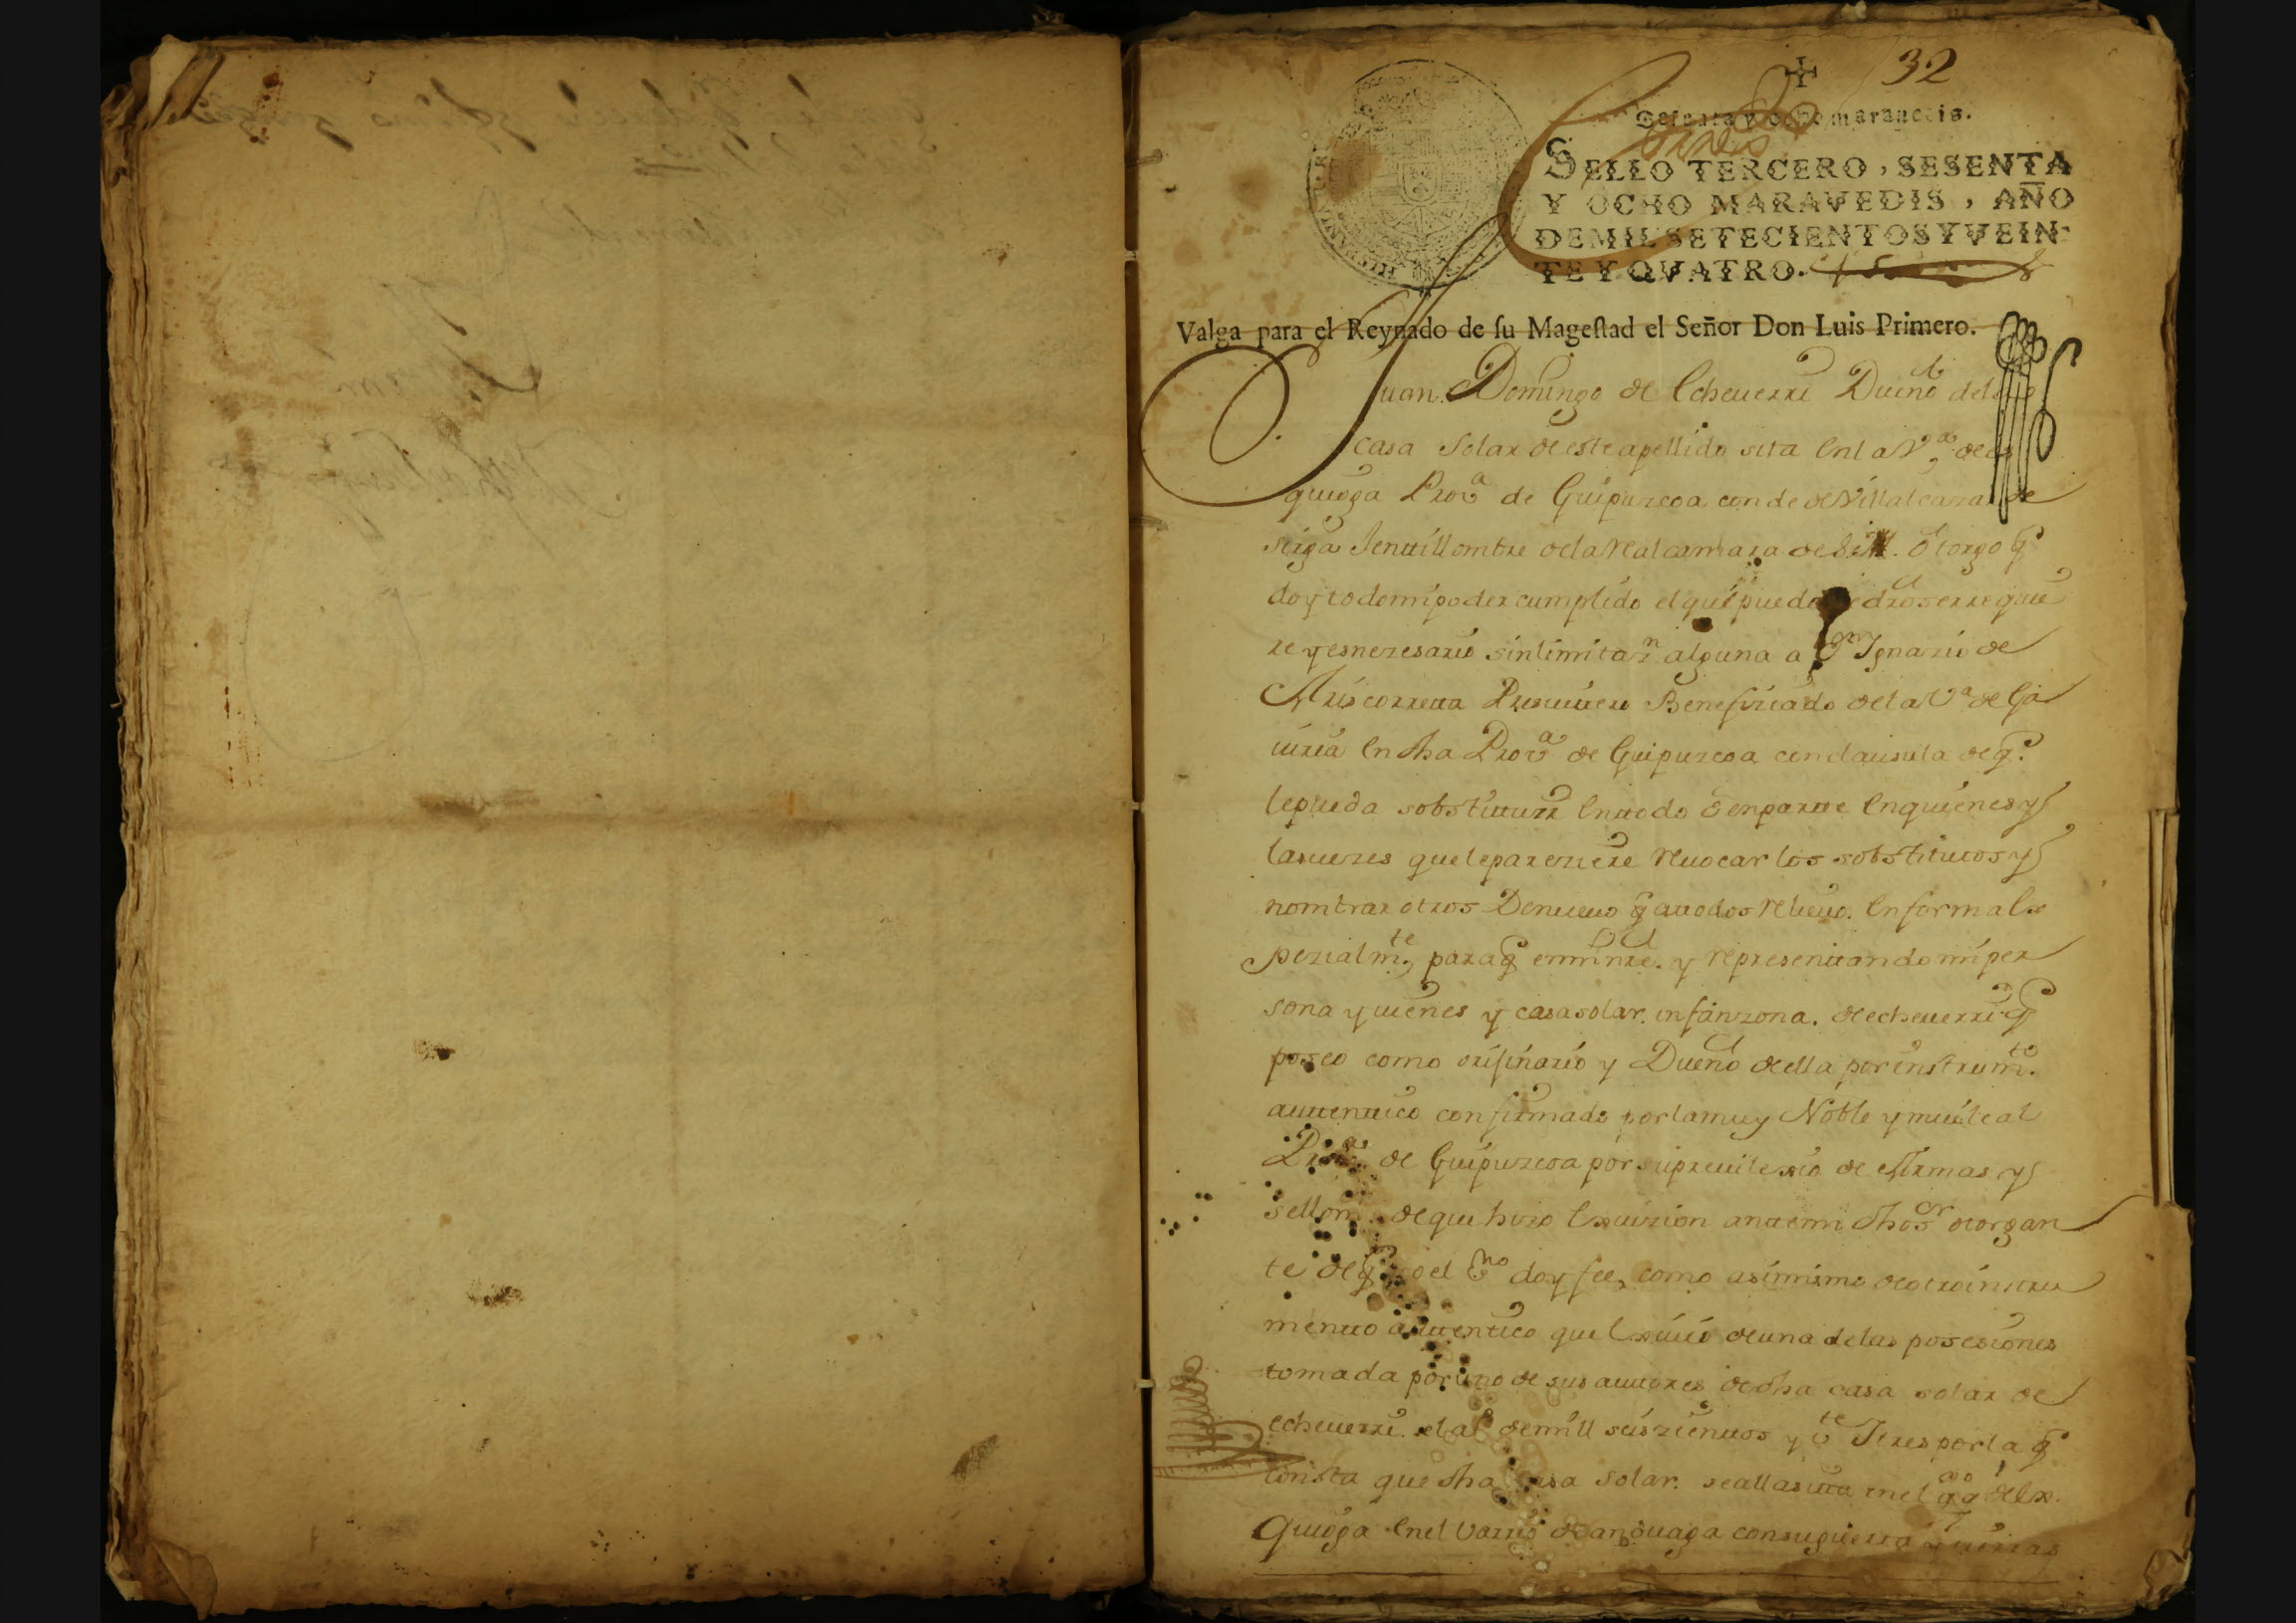 32
Sesenta y ocho maravedis.
SELLO TERCERO, SESENTA
Y OCHO MARAVEDIS, AÑO
DE MIL SETECIENTOS Y VEIN-
TE Y QVATRO.
Valga para el Reynado de ſu Mageſtad el Señor Don Luis Primero.
Juan Domingo de Echeuerri Dueño dela
casa Solar de este apellido sita Enla Vª de
quioga Provª de Guipuzcoa conde de Villalcazar de
sirga Jentillombre dela Real camara de S. M. Otorgo q
doy todo mi poder cumplido el que puedo de dro se rre quie
re y es nezesario sin limitazn alguna a Dn Ignazio de
Ariscorreta Presuitero Benefiziado dela Vª de Ga
uiria En dha Provª de Guipuzcoa con clausula de q
le pueda sobstituir En todo o en parte En quienes y
las uezes que le pareziere Reuocar los sobstitutos y
nombrar otros De nueuo q a todos Relieuo. En forma Es
pezialmte para q en mi nre. y representando mi per
sona y uienes y casa solar infanzona. de echeuerri q
poseo como orijinario y Dueño della por instrumto
autentico confirmado por la muy Noble y mui leal
Provª de Guipuzcoa por su preuilejio de Armas y
sellon de que hizo Exiuizion ante mi dho sor otorgan
te de q yo el Eno doy fee, como asimismo de otro instru
mento autentico que Exiuio de una delas posesiones
tomada por uno de sus autores de dha casa solar de
echeuerri el año de mill seiszientos y ve Jtres por la q
Consta que dha casa Solar. se alla sita en el
Quioga En el varrio de anduaga con su